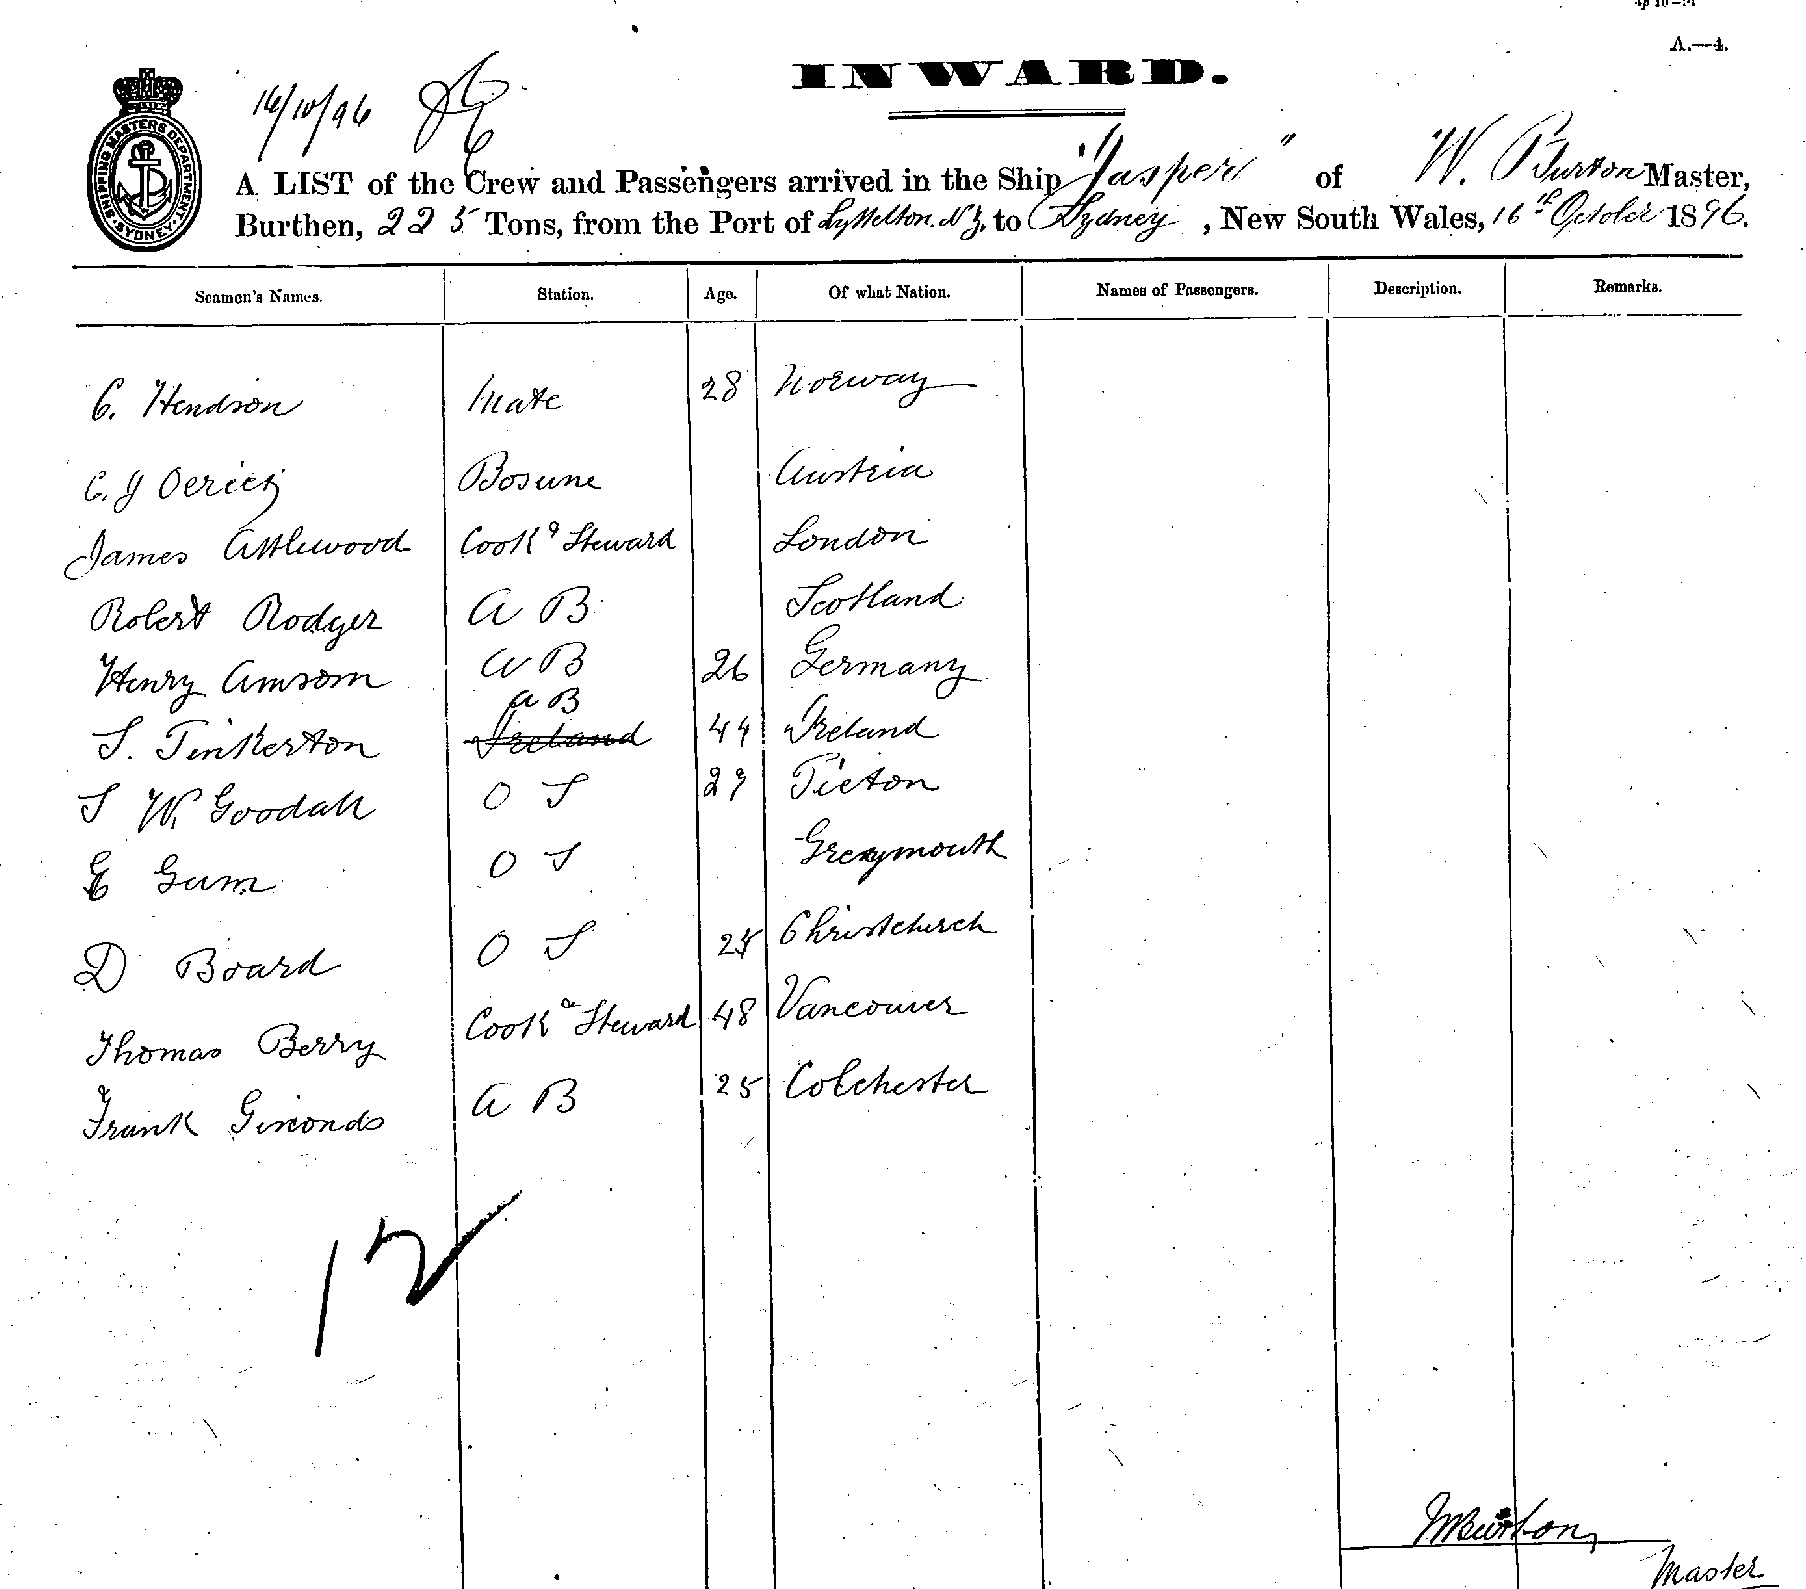 A.—4.
INWARD.
16/10/96
SHIPPING MASTERS DEPARTMENT SYDNEY
A LIST of the Crew and Passengers arrived in the Ship "Jasper" of W. Burton Master,
Burthen, 225 Tons, from the Port of Lyttelton. N Z. to Sydney, New South Wales, 16th October 1896.
Seamen's Names. Station. Age. Of what Nation. Names of Passengers. Description. Remarks.
C. Hendson Mate 28 Norway
C. J Bosune Austria
James Attlewood Cook & Steward London
Robert Rodger A B Scotland
Henry Amsom A B 26 Germany
A B
S. Tinkerton Ireland 44 Ireland
S W. Goodall O S Picton
E Gum O S Greymouth
D Board O S Christchurch
Thomas Berry Cook & Steward 48 Vancouver
Frank A B 25 Colchester
12
W Burton
Master